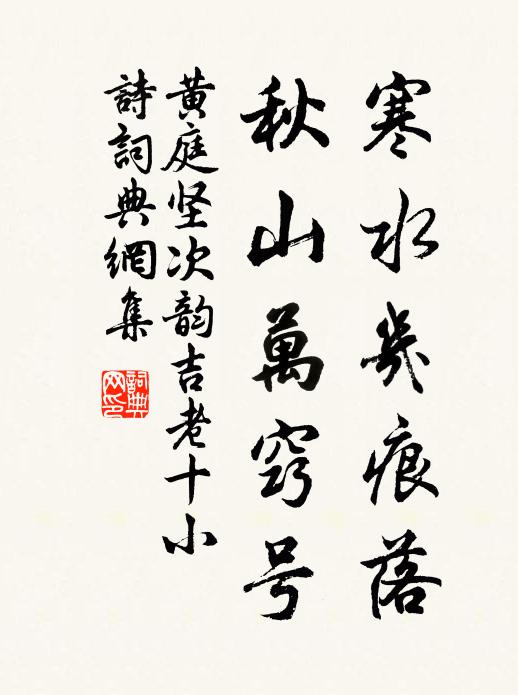 寒水幾痕落
秋山萬竅号
黄庭坚次韵吉老十小
詩詞典網集
詞典网印